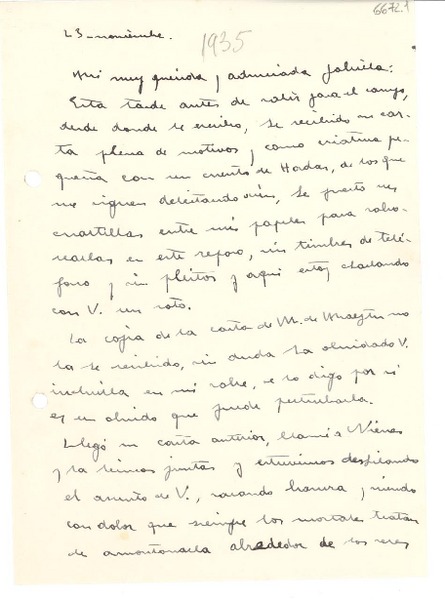 6672.1
23-noviembre.
1935
Mi muy querida y admirada Gabriela:
Esta tarde antes de salir para el campo,
desde donde le escribo, he recibido su car-
ta plena de motivos y como criatura pe-
queña con un cuento de Hadas, de los que
me siguen deleitando aún, he puesto sus
cuartillas entre mis papeles para sabo-
rearlas en este reposo, sin timbres de telé-
fono y sin pleitos y aquí estoy charlando
con V. un rato.
La copia de la carta de M. de Maeztu no
la he recibido, sin duda ha olvidado V.
incluirla en mi sobre, se lo digo por si
es un olvido que puede perturbarla.
Llegó su carta anterior, llamé a Nieves
y la leimos juntas y estuvimos
el asunto de V., sacando y viendo
con dolor que siempre los mortales tratan
de amontonarla alrededor de los seres